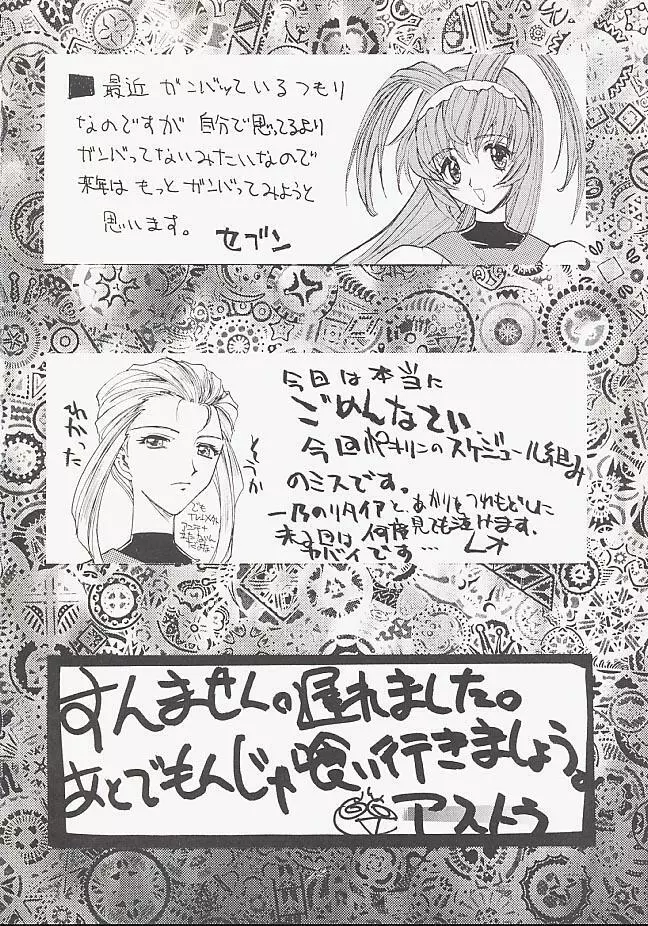 ■ 最近 ガンバッているつもり
なのですが 自分で思ってるより
ガンバってないみたいなので
来年は もっと ガンバってみようと
思います。 セブン
今回は本当に
ごめんなさい
今回のスケジュール組み
のミスです。
一乃のリタイアと、あかりをつれもどしに
来る回は 何度見ても泣けます。
ヤバイです…
すんません。遅れました。
あとでもんじゃ喰い行きましょう。
アストラ